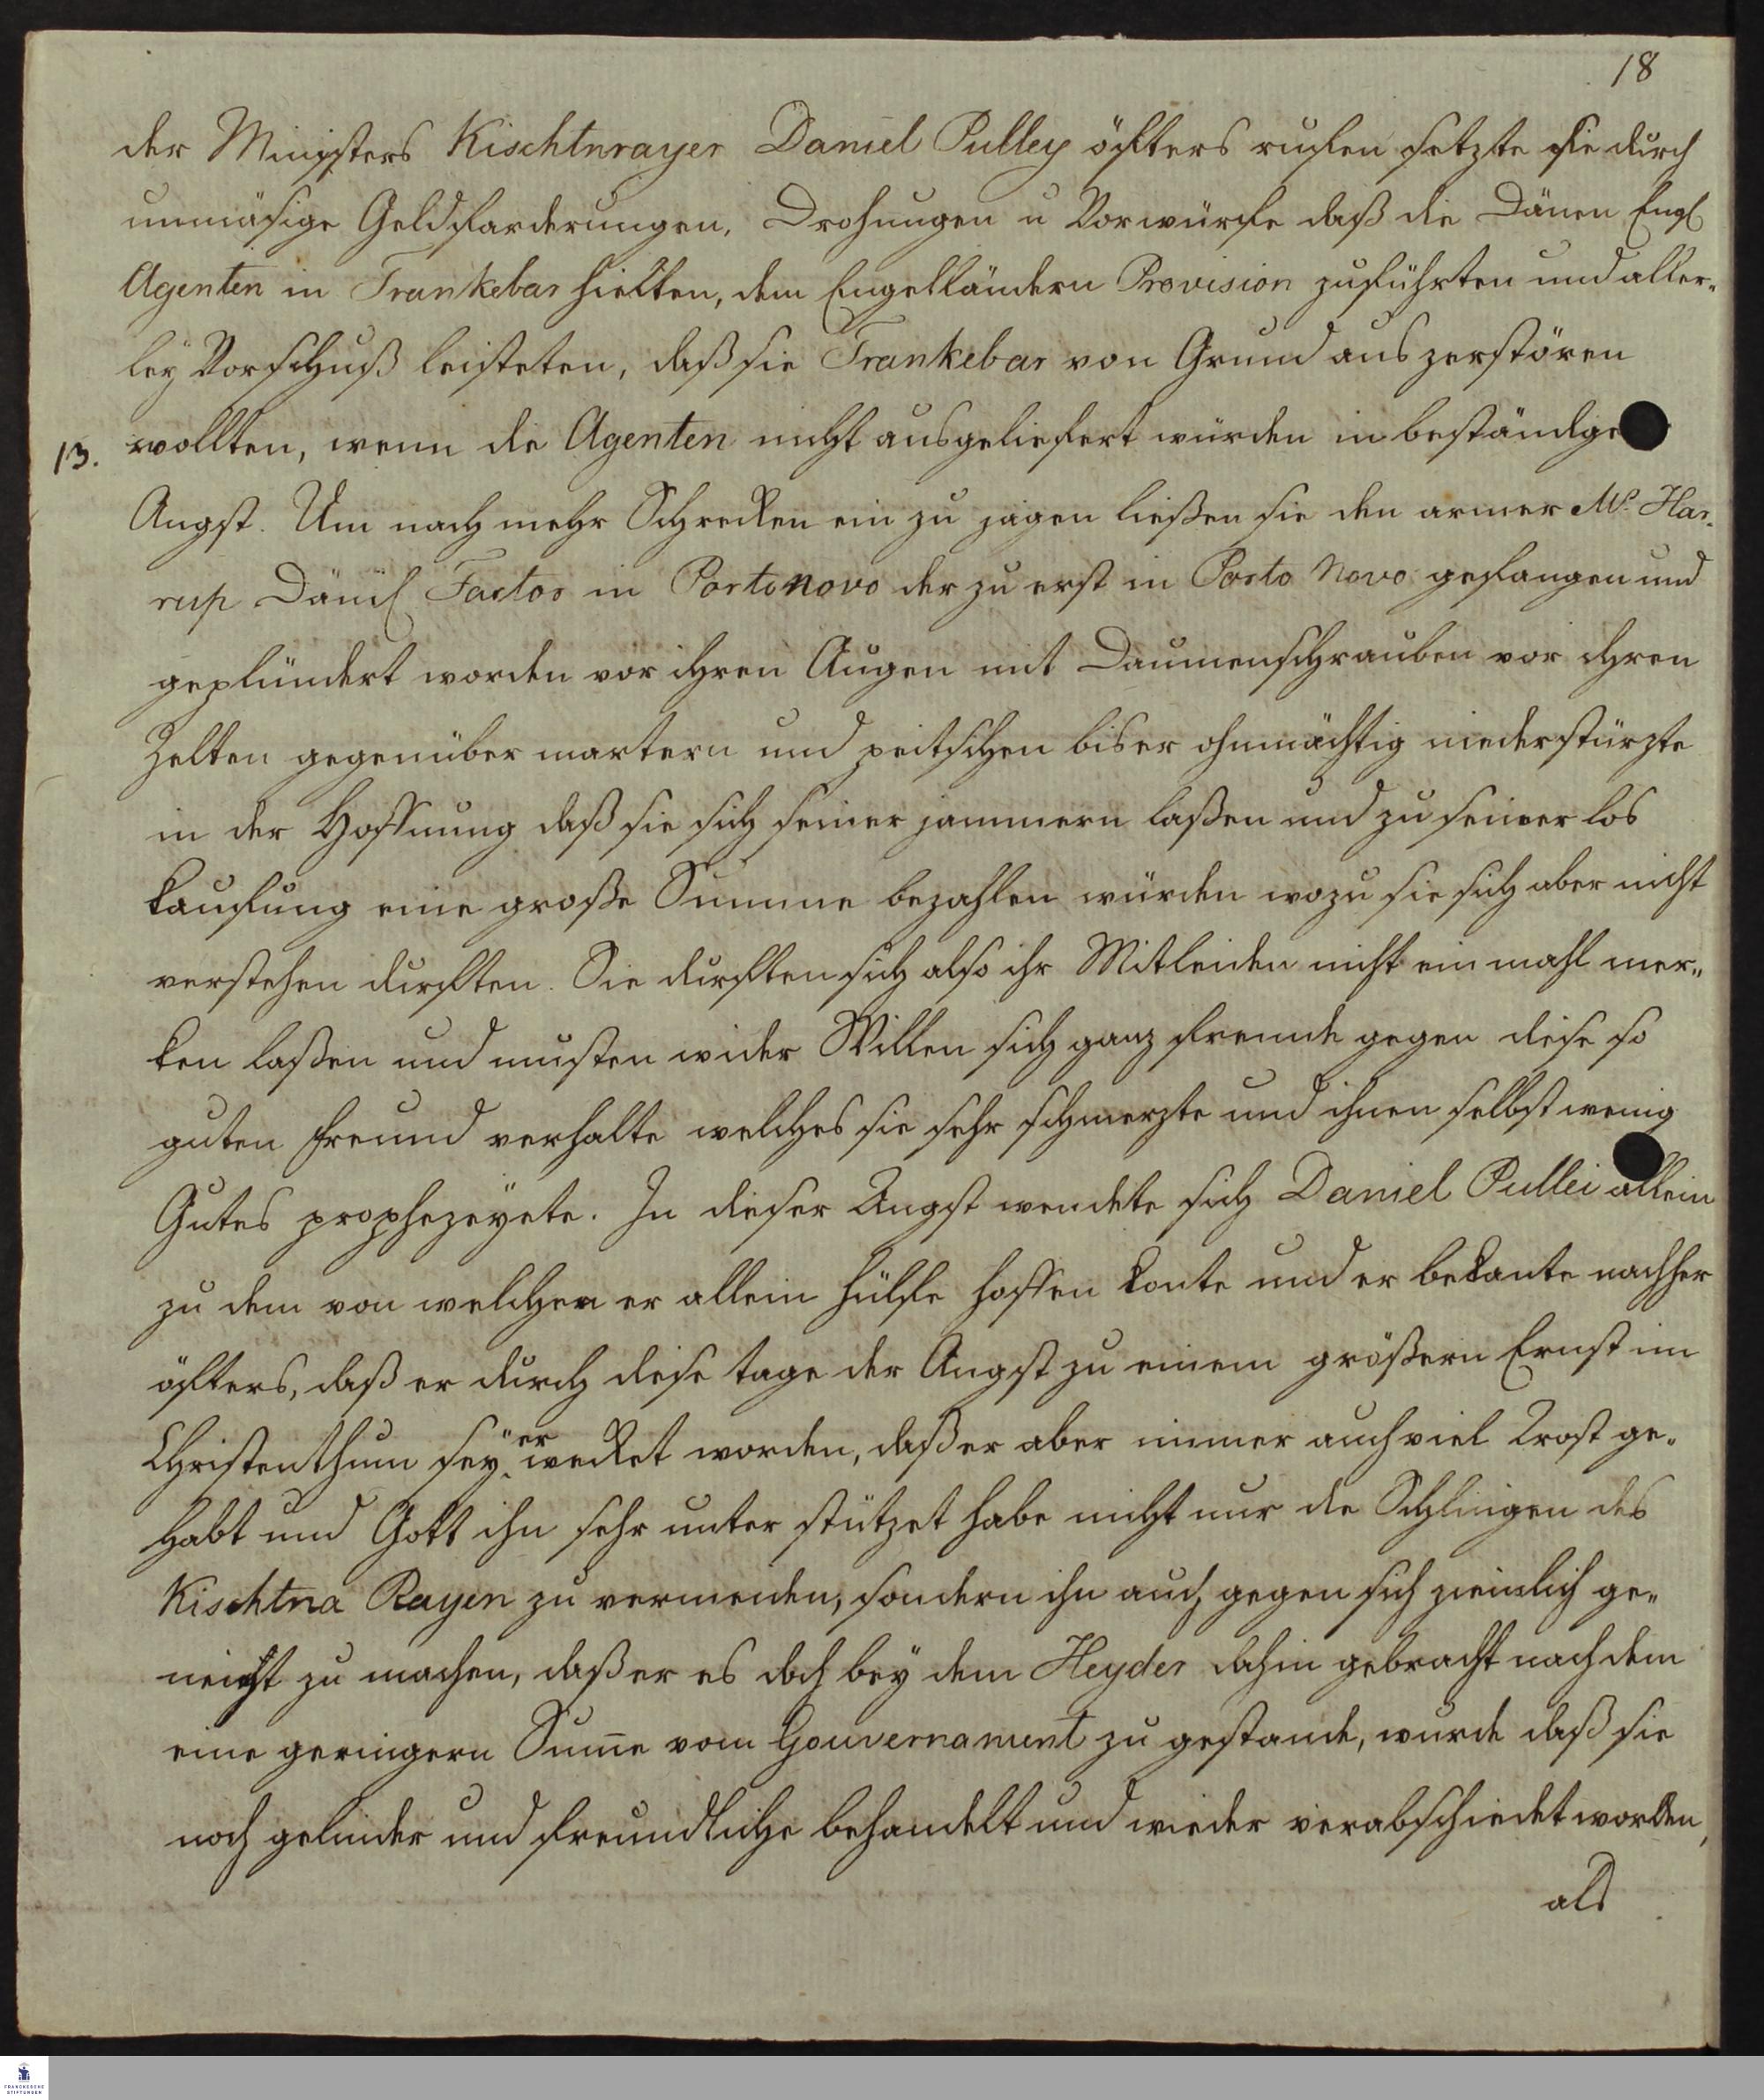 18
der Ministers Kischtnrayer Daniel Pulley öfters rufen setzte sie durch
unmäsige Geldfarderungen, Drohungen u Vorwürfe daß die Dänen Engl
Agenten in Trankebar hielten, dem Engelländern Provision zuführten und aller-
ley Vorschuß leisteten, daß sie Trankebar von Grund aus zerstören
13. wollten, wenn die Agenten nicht ausgeliefert würden in beständige
Angst. Um noch mehr Schrecken ein zu jagen ließen sie den armer Mr. Har-
rup Dänis Factor in Portonovo der zu erst in Porto Novo gefangen und
geplündert worden vor ihren Augen mit Daumenschrauben vor ihren
Zelten gegenüber martern und peitschen bis er ohnmächtig niederstürzte
in der Hoffnung daß sie sich seiner jammern laßen und zu seiner los
kaufung eine große Summe bezahlen würden wozu sie sich aber nicht
verstehen durften. Sie durften sich also ihr Mitleiden nicht ein mahl mer-
ken laßen und musten wider Willen sich ganz fremde gegen diese so
guten Freund verhalte welches sie sehr schmerzte und ihnen selbst wenig
Gutes prophezeyete. In dieser Angst wendete sich Daniel Pullei allein
zu dem von welchen er allein Hülfe hoffen konte und er bekante nachher
öfters, daß er durch diese tage der Angst zu einem größern Ernst im
Christenthum sey erwecket worden, daß er aber immer auch viel Trost ge-
habt und Gott ihn sehr unter stützet habe nicht nur die Schlingen des
Kischtna Rayen zu vermeiden, sondern ihn auch gegen sich ziemlich ge-
neicht zu machen, daß er es doch bey dem Heyder dahin gebracht nach dem
eine geringern Sum̅e vom Gouvernament zu gestande, wurde daß sie
noch gelinder und freundliche behandelt und wieder verabschiedet worden,
als
FRANCKESCHE
STIFTUNGEN